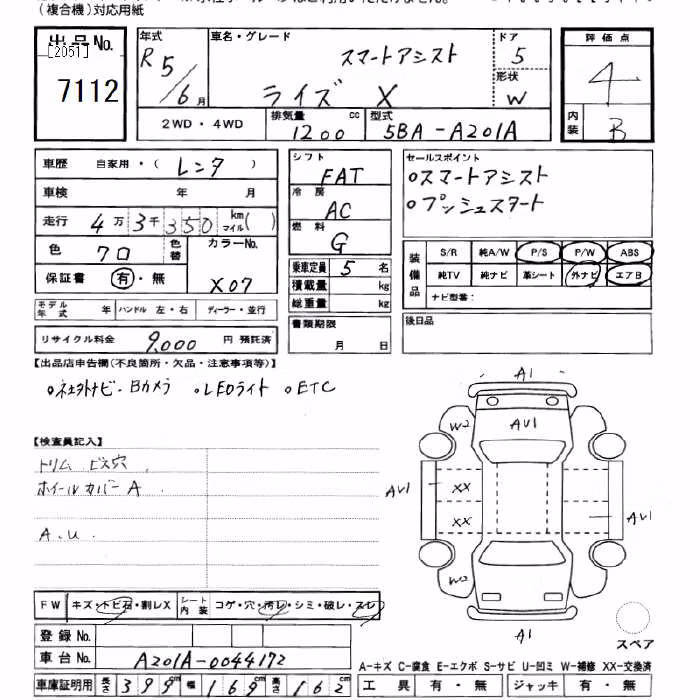 (複合機)対応用紙
出品No.
[2051]
7112
年式
R5/6月
車名・グレード
スマートアシスト
ライズ X
ドア
5
形状
W
評価点
4
内装
B
2WD・4WD
排気量 cc
1200
型式
5BA-A201A
車歴 自家用・(レンタ)
車検 年 月
走行 4万3千350 km マイル( )
色 クロ 色替
カラーNo.
X07
保証書 有・無
モデル年式 年 ハンドル 左・右 ディーラー・並行
リサイクル料金 9,000 円 預託済
シフト
FAT
冷房
AC
燃料
G
乗車定員 5 名
積載量 kg
総重量 kg
書類期限
月 日
セールスポイント
○スマートアシスト
○プッシュスタート
装備品
S/R 純A/W P/S P/W ABS
純TV 純ナビ 革シート 外ナビ エアB
ナビ型番:
後日品
【出品店申告欄(不良箇所・欠品・注意事項等)】
○社外ナビ・Bカメラ ○LEDライト ○ETC
【検査員記入】
トリム ビス穴
ホイールカバー A
A.U
A1
W2
AU1
XX
AU1
XX
AU1
W2
A1
スペア
FW キズ・トビ石・割レX シート内装 コゲ・穴・汚レ・シミ・破レ・スレ
登録No.
車台No. A201A-0044172
車庫証明用 長さ 399cm 幅 169cm 高さ 162cm
A-キズ C-腐食 E-エクボ S-サビ U-凹ミ W-補修 XX-交換済
工具 有・無 ジャッキ 有・無